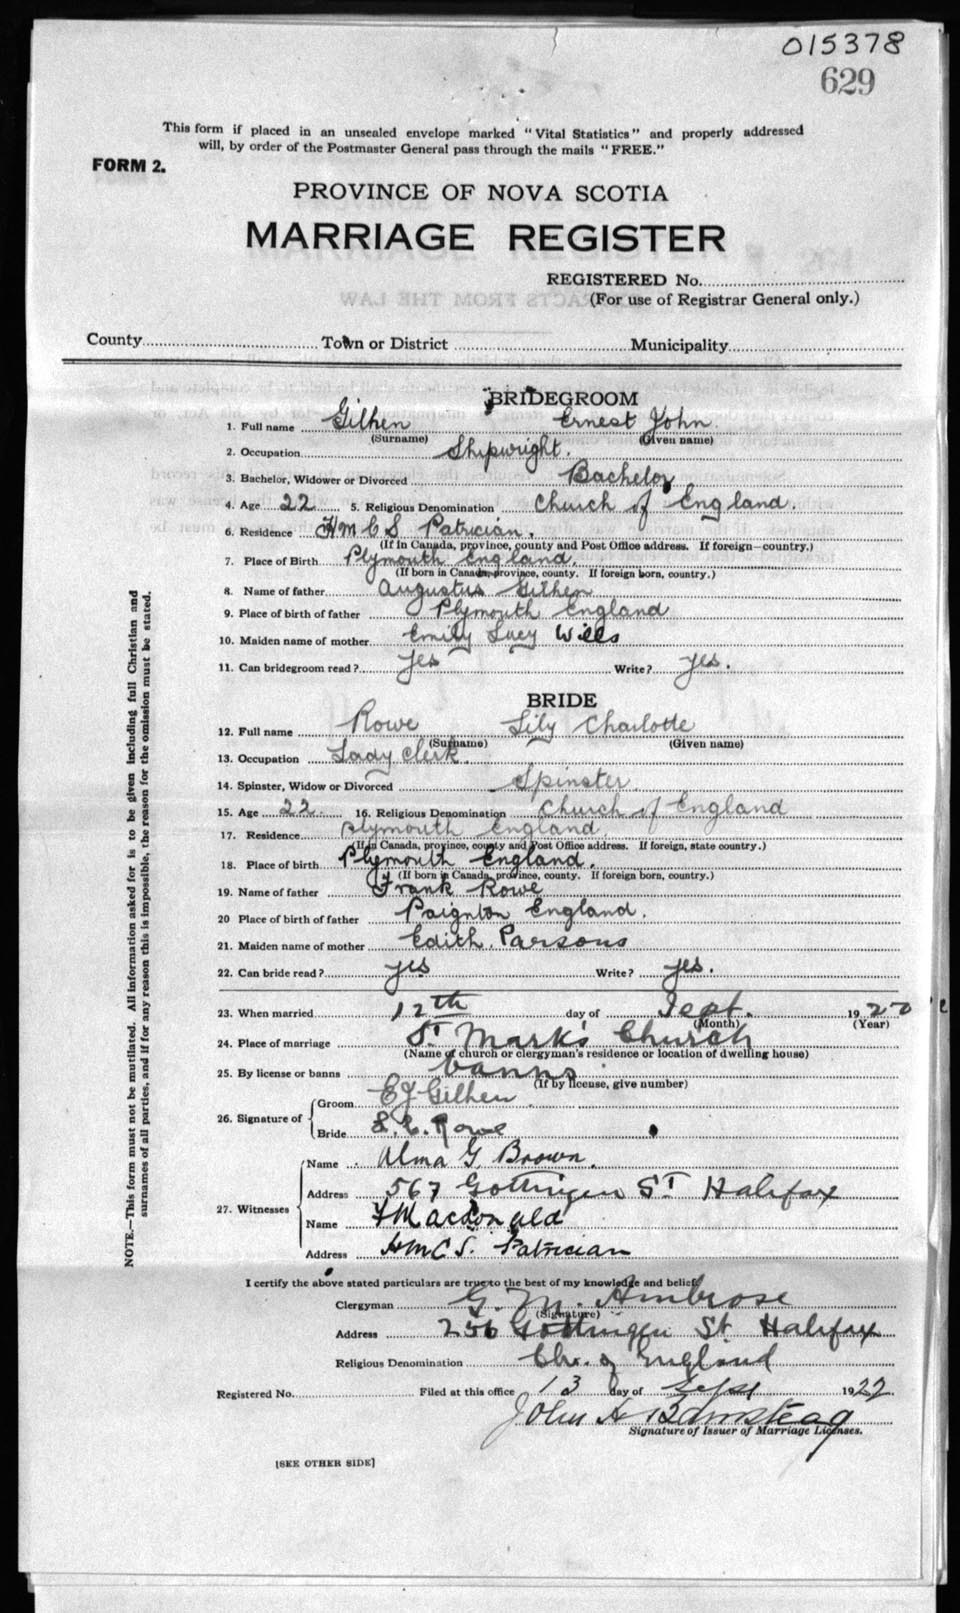 015378
629
This form if placed in an unsealed envelope marked "Vital Statistics" and properly addressed
will, by order of the Postmaster General pass through the mails "FREE."
FORM 2.
PROVINCE OF NOVA SCOTIA
MARRIAGE REGISTER
REGISTERED No.
(For use of Registrar General only.)
County Town or District Municipality
BRIDEGROOM
1. Full name Gilhen Ernest John
(Surname) (Given name)
2. Occupation Shipwright.
3. Bachelor, Widower or Divorced Bachelor
4. Age 22 5. Religious Denomination Church of England.
6. Residence HMCS Patrician.
(If in Canada, province, county and Post Office address. If foreign—country.)
7. Place of Birth Plymouth England.
(If born in Canada, province, county. If foreign born, country.)
8. Name of father Augustus Gilhen
9. Place of birth of father Plymouth England
10. Maiden name of mother Emily Lucy Wills
11. Can bridegroom read? Yes Write? Yes.
BRIDE
12. Full name Rowe Lily Charlotte
(Surname) (Given name)
13. Occupation Lady Clerk.
14. Spinster, Widow or Divorced Spinster.
15. Age 22 16. Religious Denomination Church of England
17. Residence Plymouth England.
(If in Canada, province, county and Post Office address. If foreign, state country.)
18. Place of birth Plymouth England.
(If born in Canada, province, county. If foreign born, country.)
19. Name of father Frank Rowe
20 Place of birth of father Paignton England.
21. Maiden name of mother Edith. Parsons
22. Can bride read? yes Write? yes.
23. When married 12th day of Sept. 1922
(Month) (Year)
24. Place of marriage St Mark's Church
(Name of church or clergyman's residence or location of dwelling house)
25. By license or banns banns
(If by license, give number)
26. Signature of Groom EJ Gilhen
Bride L. C. Rowe
27. Witnesses Name Alma G Brown.
Address 567 Gottingen St Halifax
Name Macdonald
Address HMCS. Patrician
I certify the above stated particulars are true to the best of my knowledge and belief.
Clergyman G. M. Ambrose
(Signature)
Address 256 Gottingen St Halifax
Religious Denomination Ch. of England
Registered No. Filed at this office 13 day of Sept 1922
John A
Signature of Issuer of Marriage Licenses.
[SEE OTHER SIDE]
NOTE.—This form must not be mutilated. All information asked for is to be given including full Christian and
surnames of all parties, and if for any reason this is impossible, the reason for the omission must be stated.